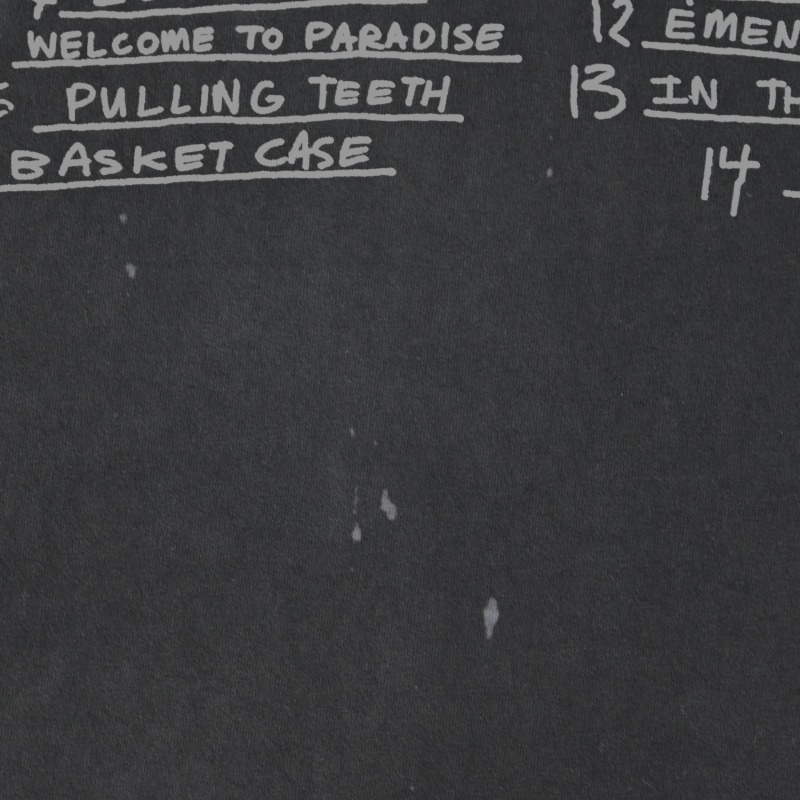 WELCOME TO PARADISE
PULLING TEETH
BASKET CASE
12 EMEN
13 IN TH
14